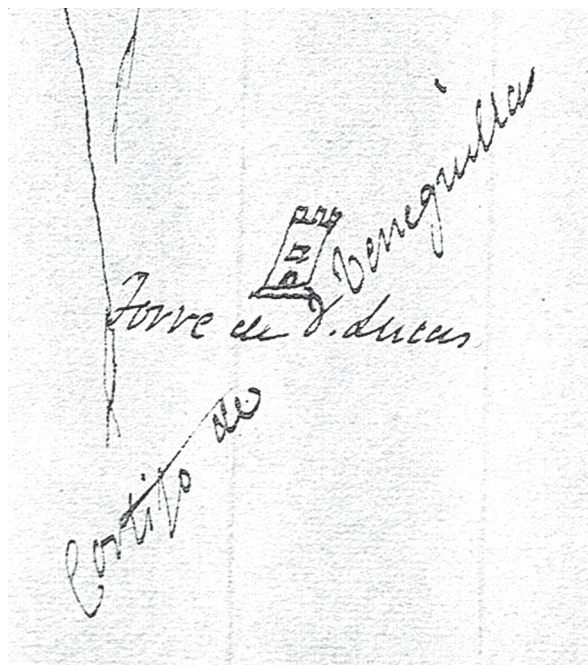 Torre de D. Lucas
Cortijo de Venreguilla